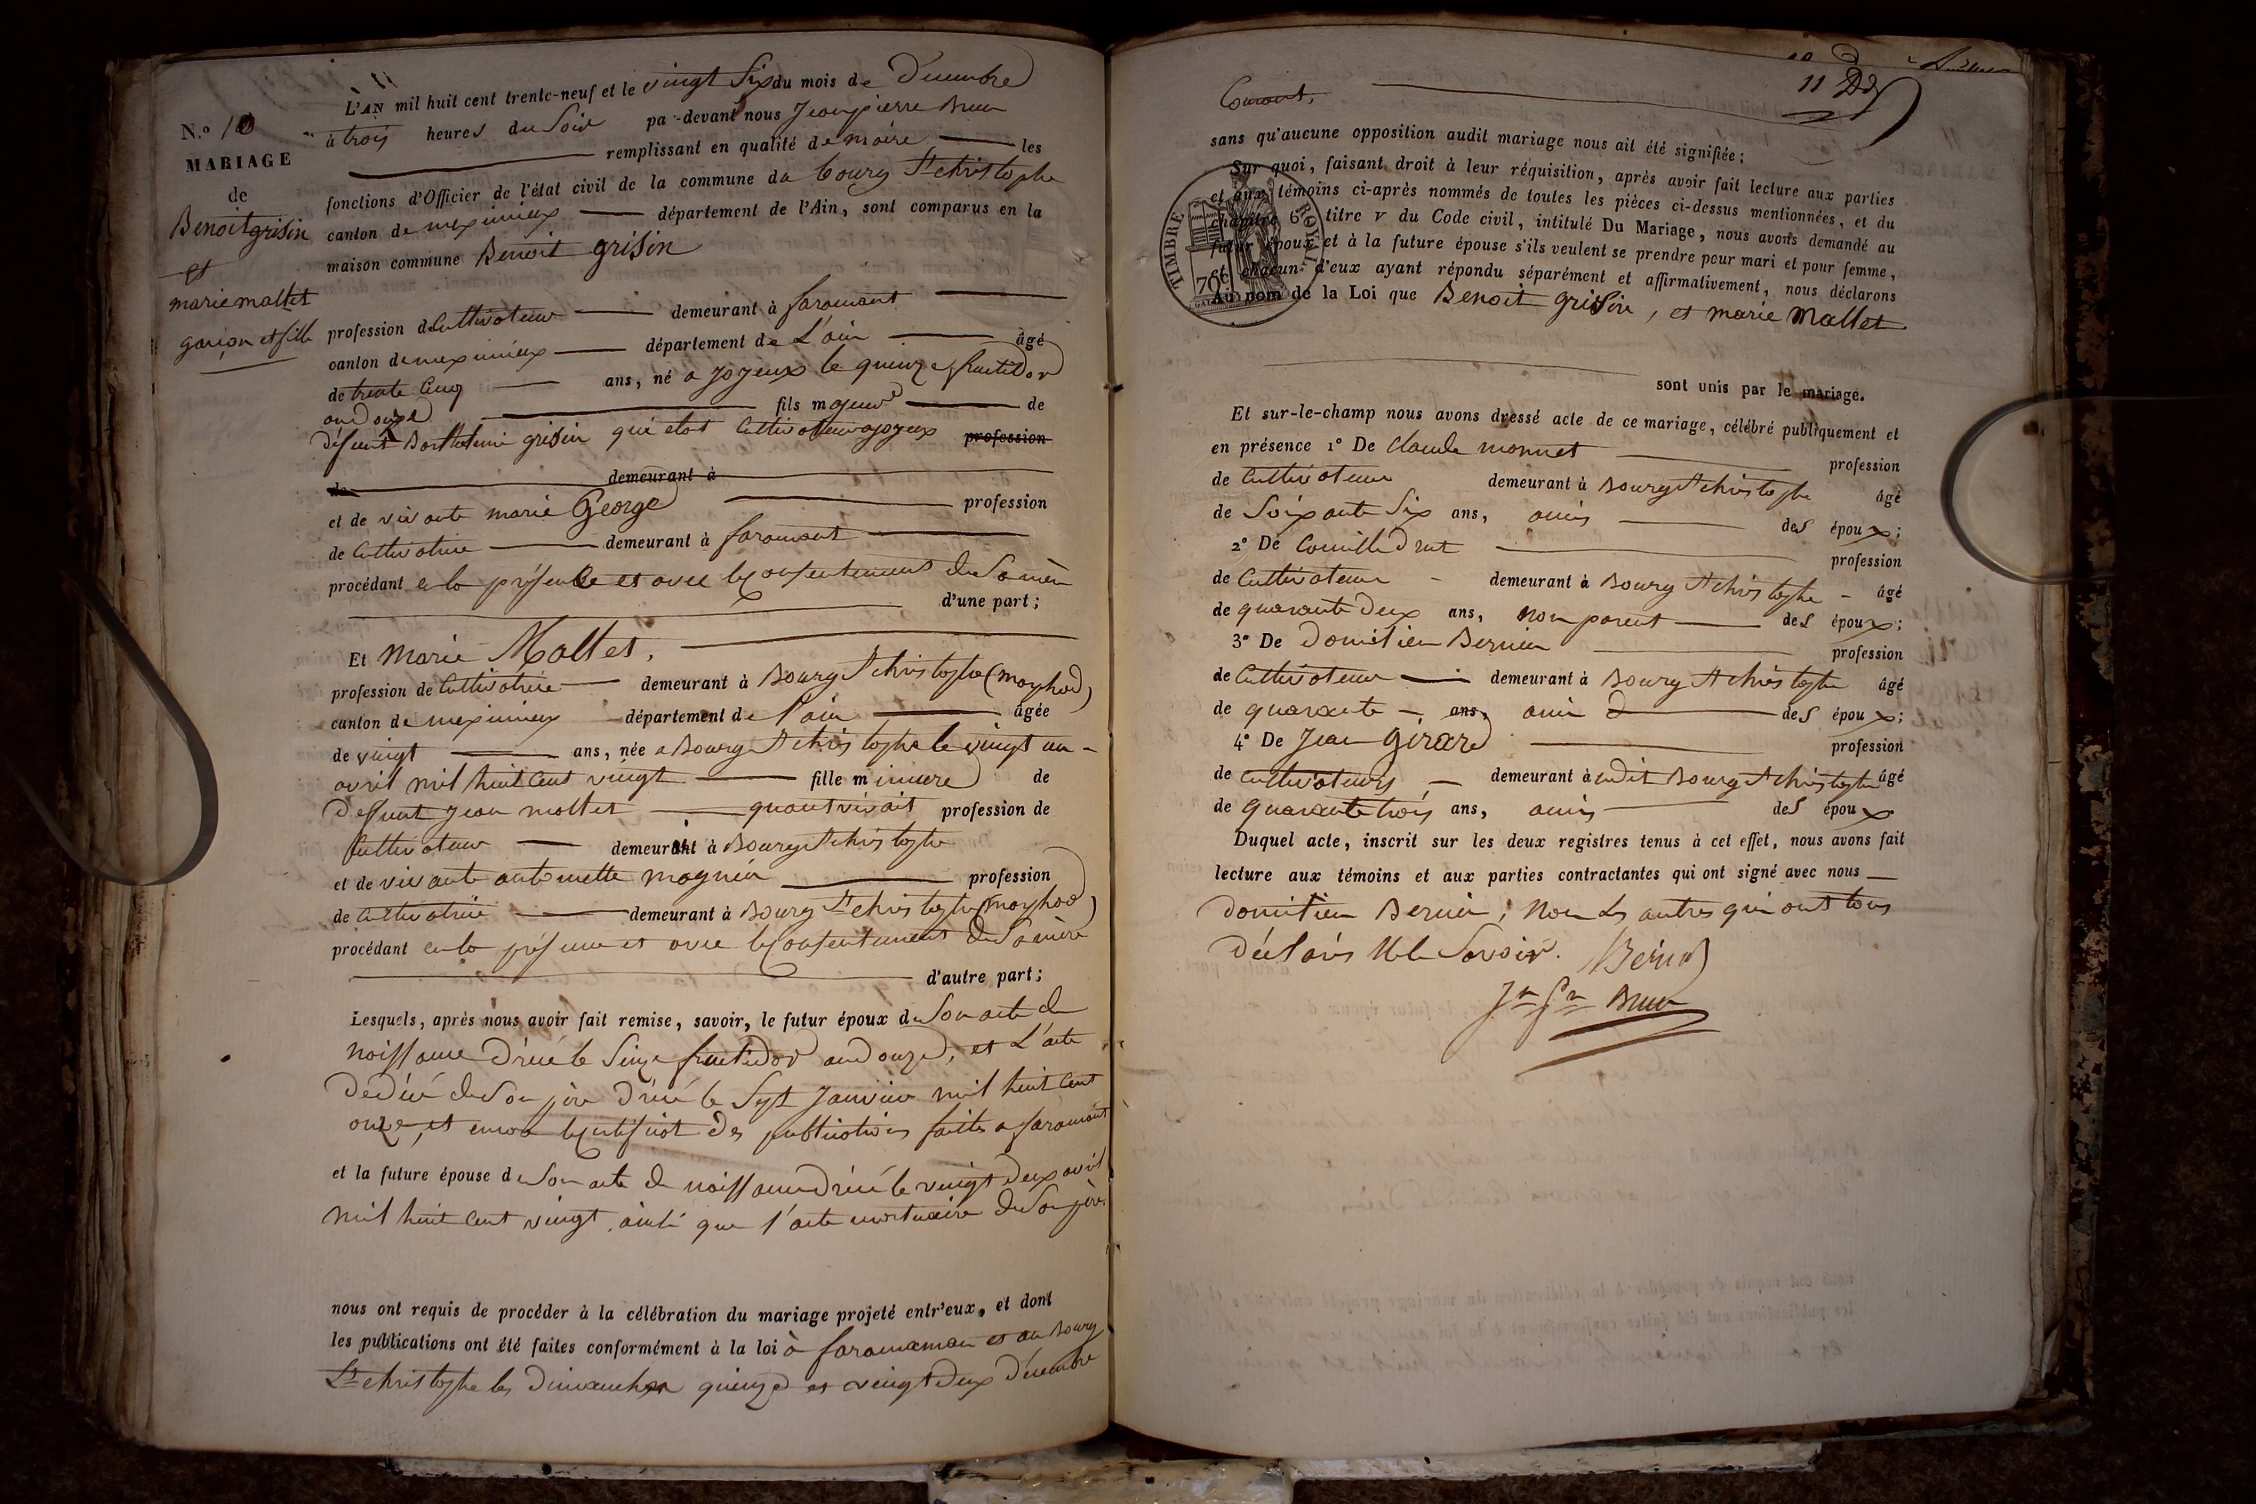 N.º 10
MARIAGE
de
Benoit grisin
et
marie mallet
garçon et fille
L'AN mil huit cent trente-neuf et le vingt six du mois de Décembre
à trois heures du soir par-devant nous Jean pierre Brun
remplissant en qualité de maire les
fonctions d'Officier de l'état civil de la commune du bourg St christophe
canton de meximieux département de l'Ain, sont comparus en la
maison commune Benoit grisin
profession de Cultivateur demeurant à faramant
canton de meximieux département de L'ain âgé
de trente Cinq ans, né a Joyeux le quinze fructidor
an douze fils majeur de
défunt Barthelemi grisin qui etot Cultivateur a joyeux profession
de demeurant à
et de vivante marie George profession
de Cultivatrice demeurant à faramant
procédant en la présence et avec le Consentement de Sa mère
d'une part;
Et Marie Mallet,
profession de Cultivatrice demeurant à Bourg St christophe (mayhod)
canton de meximieux département de l'ain âgée
de vingt ans, née a Bourg St christophe le vingt un
avril mil huit Cent vingt fille mineure de
Defunt Jean mallet quant vivait profession de
Cultivateur demeurant à Bourg St christophe
et de vivante antoinette magnin profession
de Cultivatrice demeurant à Bourg St christophe (mayhod)
procédant en la présence et avec le Consentement de Sa mère
d'autre part;
Lesquels, après nous avoir fait remise, savoir, le futur époux de Son acte de
naissance Dréssé le Seize fructidor an douze, et L'acte
de décé de Son père Dréssé le Sept Janvier mil huit Cent
onze, et encore le Certificat des publications faittes a faramant
et la future épouse de Son acte de naissance Dréssé le vingt deux avril
mil huit Cent vingt ainsi que l'acte mortuaire de Son père
nous ont requis de procéder à la célébration du mariage projeté entr'eux, et dont
les publications ont été faites conformément à la loi à faramaman et au Bourg
St christophe les Dimanches quinze et vingt deux Décembre
11 Dd
Courant,
sans qu'aucune opposition audit mariage nous ait été signifiée;
Sur quoi, faisant droit à leur réquisition, après avoir fait lecture aux parties
et aux témoins ci-après nommés de toutes les pièces ci-dessus mentionnées, et du
chapitre 6 titre V du Code civil, intitulé Du Mariage, nous avons demandé au
futur époux et à la future épouse s'ils veulent se prendre pour mari et pour femme,
et chacun d'eux ayant répondu séparément et affirmativement, nous déclarons
Au nom de la Loi que Benoit grisin, et marie Mallet
TIMBRE ROYAL
70c
sont unis par le mariage.
Et sur-le-champ nous avons dressé acte de ce mariage, célébré publiquement et
en présence 1º De Claude monnet profession
de Cultivateur demeurant à Bourg St christophe âgé
de Soixante Six ans, amis des époux;
2º De Camille Drut profession
de Cultivateur demeurant à Bourg St christophe âgé
de quarante Deux ans, non parent des époux;
3º De Domitien Bernin profession
de Cultivateur demeurant à Bourg St christophe âgé
de quarante ans, ami des époux;
4º De Jean Girard profession
de Cultivateurs demeurant à udit Bourg St christophe âgé
de quarante trois ans, amis des époux
Duquel acte, inscrit sur les deux registres tenus à cet effet, nous avons fait
lecture aux témoins et aux parties contractantes qui ont signé avec nous
Domitien Bernin; Non les autres qui ont tous
Déclarés Ne le Savoir. Bernin
Jn Prre Brun